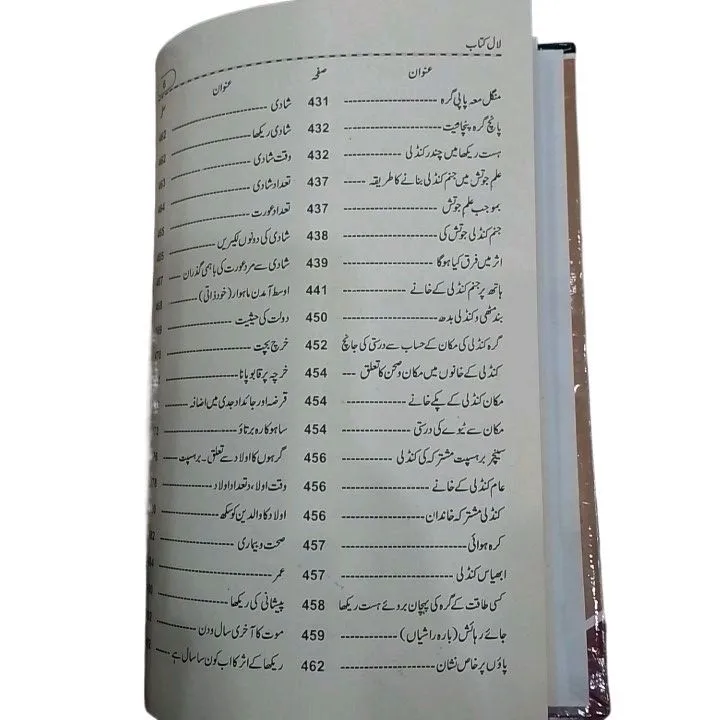 لال کتاب
6
عنوان صفحہ
منگل معہ پاپی گرہ 431
پانچ گرہ پنچائیت 432
ہست ریکھا میں چندر کنڈلی 432
علم جوتش میں جنم کنڈلی بنانے کا طریقہ 437
بموجب علم جوتش 437
جنم کنڈلی جوتش کی 438
اثر میں فرق کیا ہوگا 439
ہاتھ پر جنم کنڈلی کے خانے 441
بند مٹھی و کنڈلی بدھ 450
گرہ کنڈلی کی مکان کے حساب سے درستی کی جانچ 452
کنڈلی کے خانوں میں مکان و صحن کا تعلق 454
مکان کنڈلی کے پکے خانے 454
مکان سے ٹیوے کی درستی 454
سنیچر برہسپت مشترکہ کی کنڈلی 456
عام کنڈلی کے خانے 456
کنڈلی مشترکہ خاندان 456
کرہ ہوائی 457
ابھیاس کنڈلی 457
کسی طاقت کے گرہ کی پہچان بروئے ہست ریکھا 458
جائے رہائش (بارہ راشیاں) 459
پاؤں پر خاص نشان 462
عنوان
شادی 462
شادی ریکھا 462
وقت شادی 463
تعداد شادی 464
تعداد عورت 465
شادی کی دونوں لکیریں
شادی سے مرد عورت کی باہمی گذران 467
اوسط آمدن ماہوار (خود ذاتی) 468
دولت کی حیثیت 469
خرچ بچت 470
خرچہ پر قابو پانا
قرضہ اور جائداد جدی میں اضافہ
ساہوکارہ برتاؤ
گرہوں کا اولاد سے تعلق۔ برہسپت
وقت اولاد، تعداد اولاد
اولاد کا والدین کو سکھ
صحت و بیماری
عمر
پیشانی کی ریکھا
موت کا آخری سال و دن
ریکھا کے اثر کا اب کون سا سال ہے